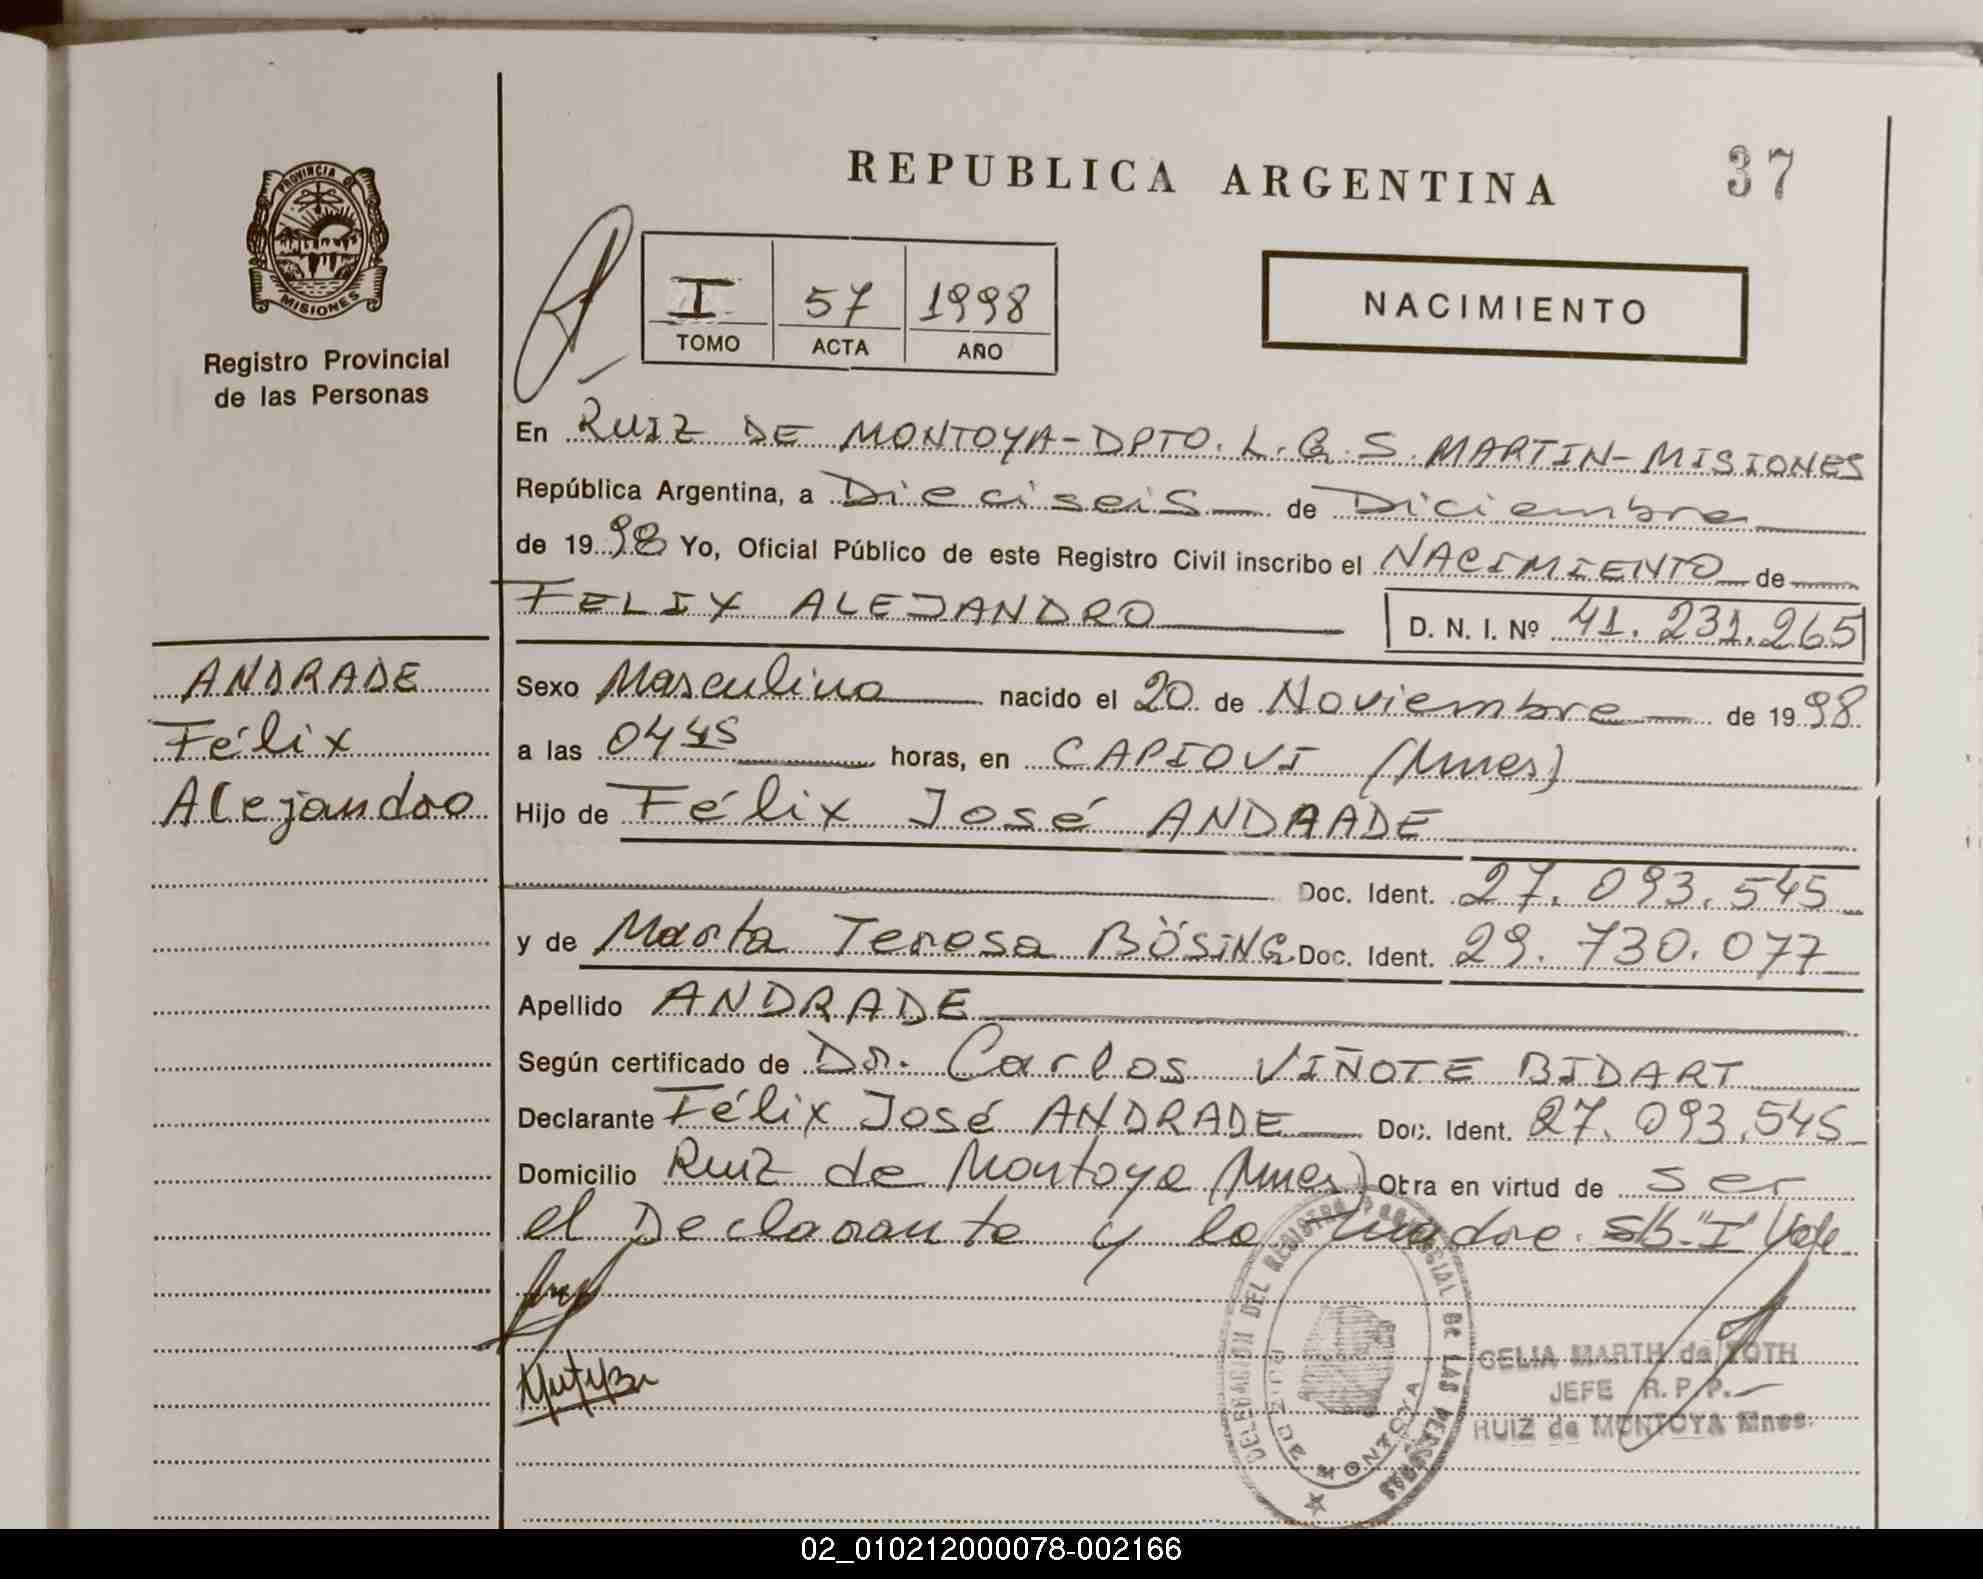 REPUBLICA ARGENTINA
37
PROVINCIA DE MISIONES
Registro Provincial
de las Personas
I 57 1998
TOMO ACTA AÑO
NACIMIENTO
En RUIZ DE MONTOYA-DPTO. L. G. S. MARTIN-MISIONES
República Argentina, a Dieciseis de Diciembre
de 1998 Yo, Oficial Público de este Registro Civil inscribo el NACIMIENTO de
FELIX ALEJANDRO D. N. I. Nº 41.231.265
ANDRADE
Félix
Alejandro
Sexo Masculino nacido el 20 de Noviembre de 1998
a las 0445 horas, en CAPIOVI (Mnes)
Hijo de Félix José ANDRADE
Doc. Ident. 27.093.545
y de Marta Teresa BÖSING Doc. Ident. 29.730.077
Apellido ANDRADE
Según certificado de Dr. Carlos VIÑOTE BIDART
Declarante Félix José ANDRADE Doc. Ident. 27.093.545
Domicilio Ruiz de Montoya (Mnes) Obra en virtud de ser
el Declarante y la madre. S/b "I" Vale
DELEGACION DEL REGISTRO PROVINCIAL DE LAS PERSONAS
RUIZ DE MONTOYA
CELIA MARTH de TOTH
JEFE R.P.P.
RUIZ de MONTOYA Mnes.
02_010212000078-002166